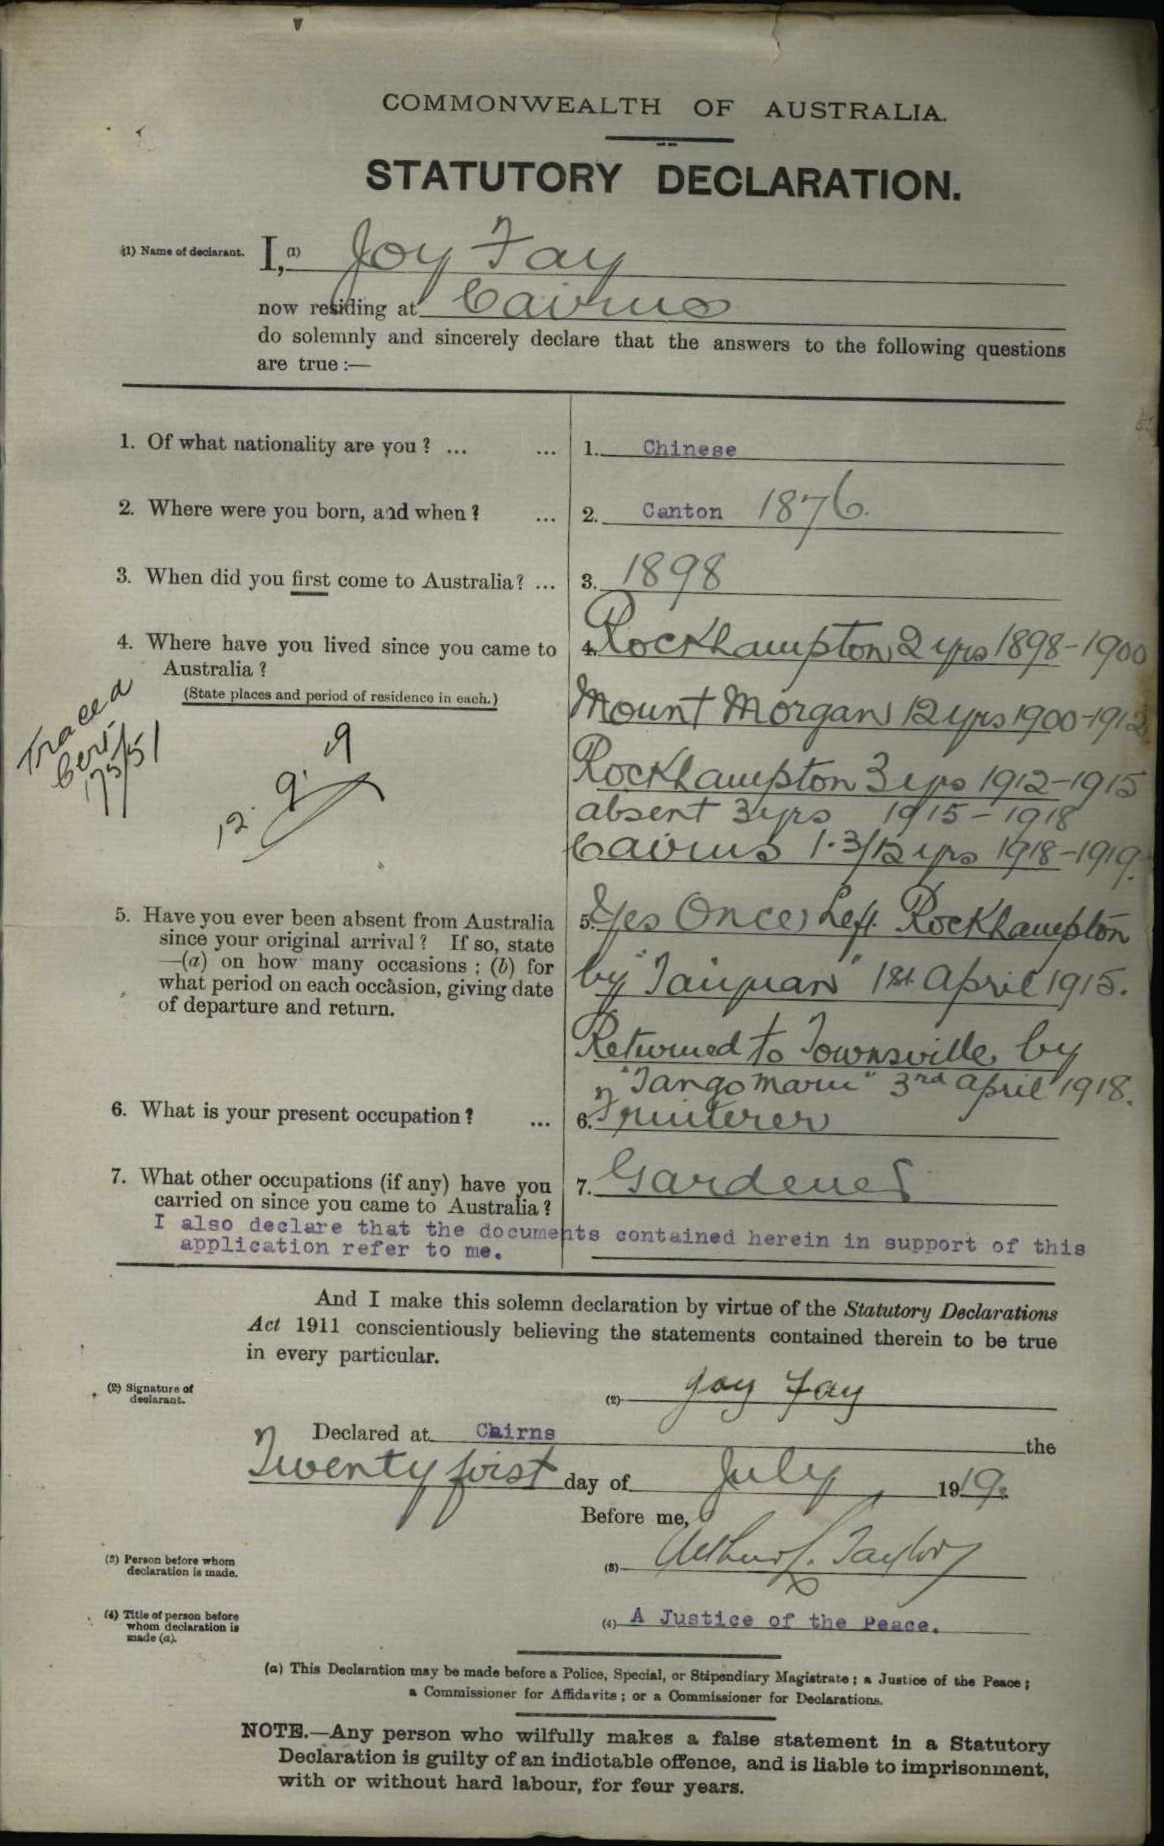 COMMONWEALTH OF AUSTRALIA.
STATUTORY DECLARATION.
(1) Name of declarant. I, (1) Joy Fay
now residing at Cairns
do solemnly and sincerely declare that the answers to the following questions
are true :—
1. Of what nationality are you ? ... ... 1. Chinese
2. Where were you born, and when ? ... 2. Canton 1876.
3. When did you first come to Australia? ... 3. 1898
4. Where have you lived since you came to 4. Rockhampton 2 yrs 1898-1900
Australia ?
(State places and period of residence in each.)
Mount Morgan 12 yrs 1900-1912
Traced
Cert.
175/51
Rockhampton 3 yrs 1912-1915
absent 3 yrs 1915-1918
12. 9. 19
Cairns 1.3/12 yrs 1918-1919.
5. Have you ever been absent from Australia 5. Yes Once, Left Rockhampton
since your original arrival ? If so, state
—(a) on how many occasions ; (b) for by "Taiyuan" 1st April 1915.
what period on each occasion, giving date
of departure and return.
Returned to Townsville by
"Tango Maru" 3rd April 1918.
6. What is your present occupation ? ... 6. Fruiterer
7. What other occupations (if any) have you 7. Gardener
carried on since you came to Australia ?
I also declare that the documents contained herein in support of this
application refer to me.
And I make this solemn declaration by virtue of the Statutory Declarations
Act 1911 conscientiously believing the statements contained therein to be true
in every particular.
(2) Signature of
declarant.
(2) Joy Fay
Declared at Cairns the
Twenty first day of July 1919.
Before me,
(3) Person before whom
declaration is made.
(3) Arthur L. Taylor
(4) Title of person before
whom declaration is
made (a).
(4) A Justice of the Peace.
(a) This Declaration may be made before a Police, Special, or Stipendiary Magistrate ; a Justice of the Peace ;
a Commissioner for Affidavits ; or a Commissioner for Declarations.
NOTE.—Any person who wilfully makes a false statement in a Statutory
Declaration is guilty of an indictable offence, and is liable to imprisonment,
with or without hard labour, for four years.